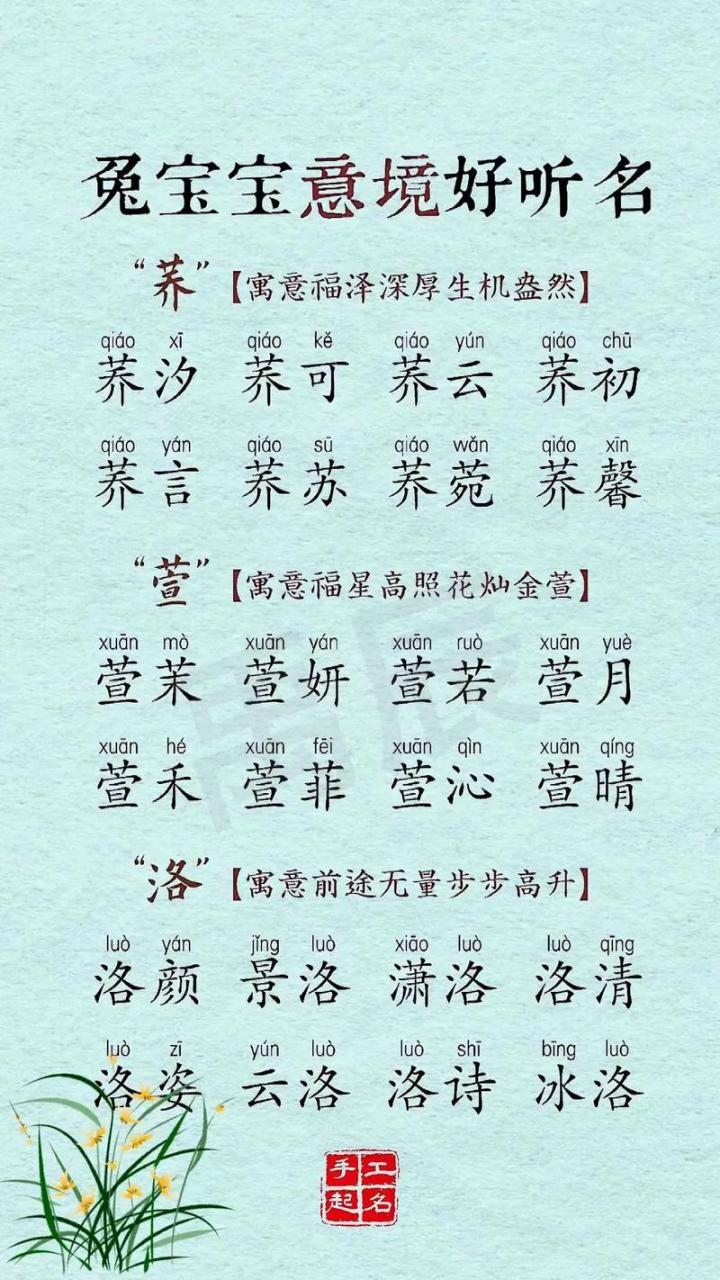 兔宝宝意境好听名
“荞”【寓意福泽深厚生机盎然】
qiáo xī qiáo kě qiáo yún qiáo chū
荞汐 荞可 荞云 荞初
qiáo yán qiáo sū qiáo wǎn qiáo xīn
荞言 荞苏 荞菀 荞馨
“萱”【寓意福星高照花灿金萱】
xuān mò xuān yán xuān ruò xuān yuè
萱茉 萱妍 萱若 萱月
xuān hé xuān fēi xuān qìn xuān qíng
萱禾 萱菲 萱沁 萱晴
“洛”【寓意前途无量步步高升】
luò yán jǐng luò xiāo luò luò qīng
洛颜 景洛 潇洛 洛清
luò zī yún luò luò shī bīng luò
洛姿 云洛 洛诗 冰洛
手工
起名